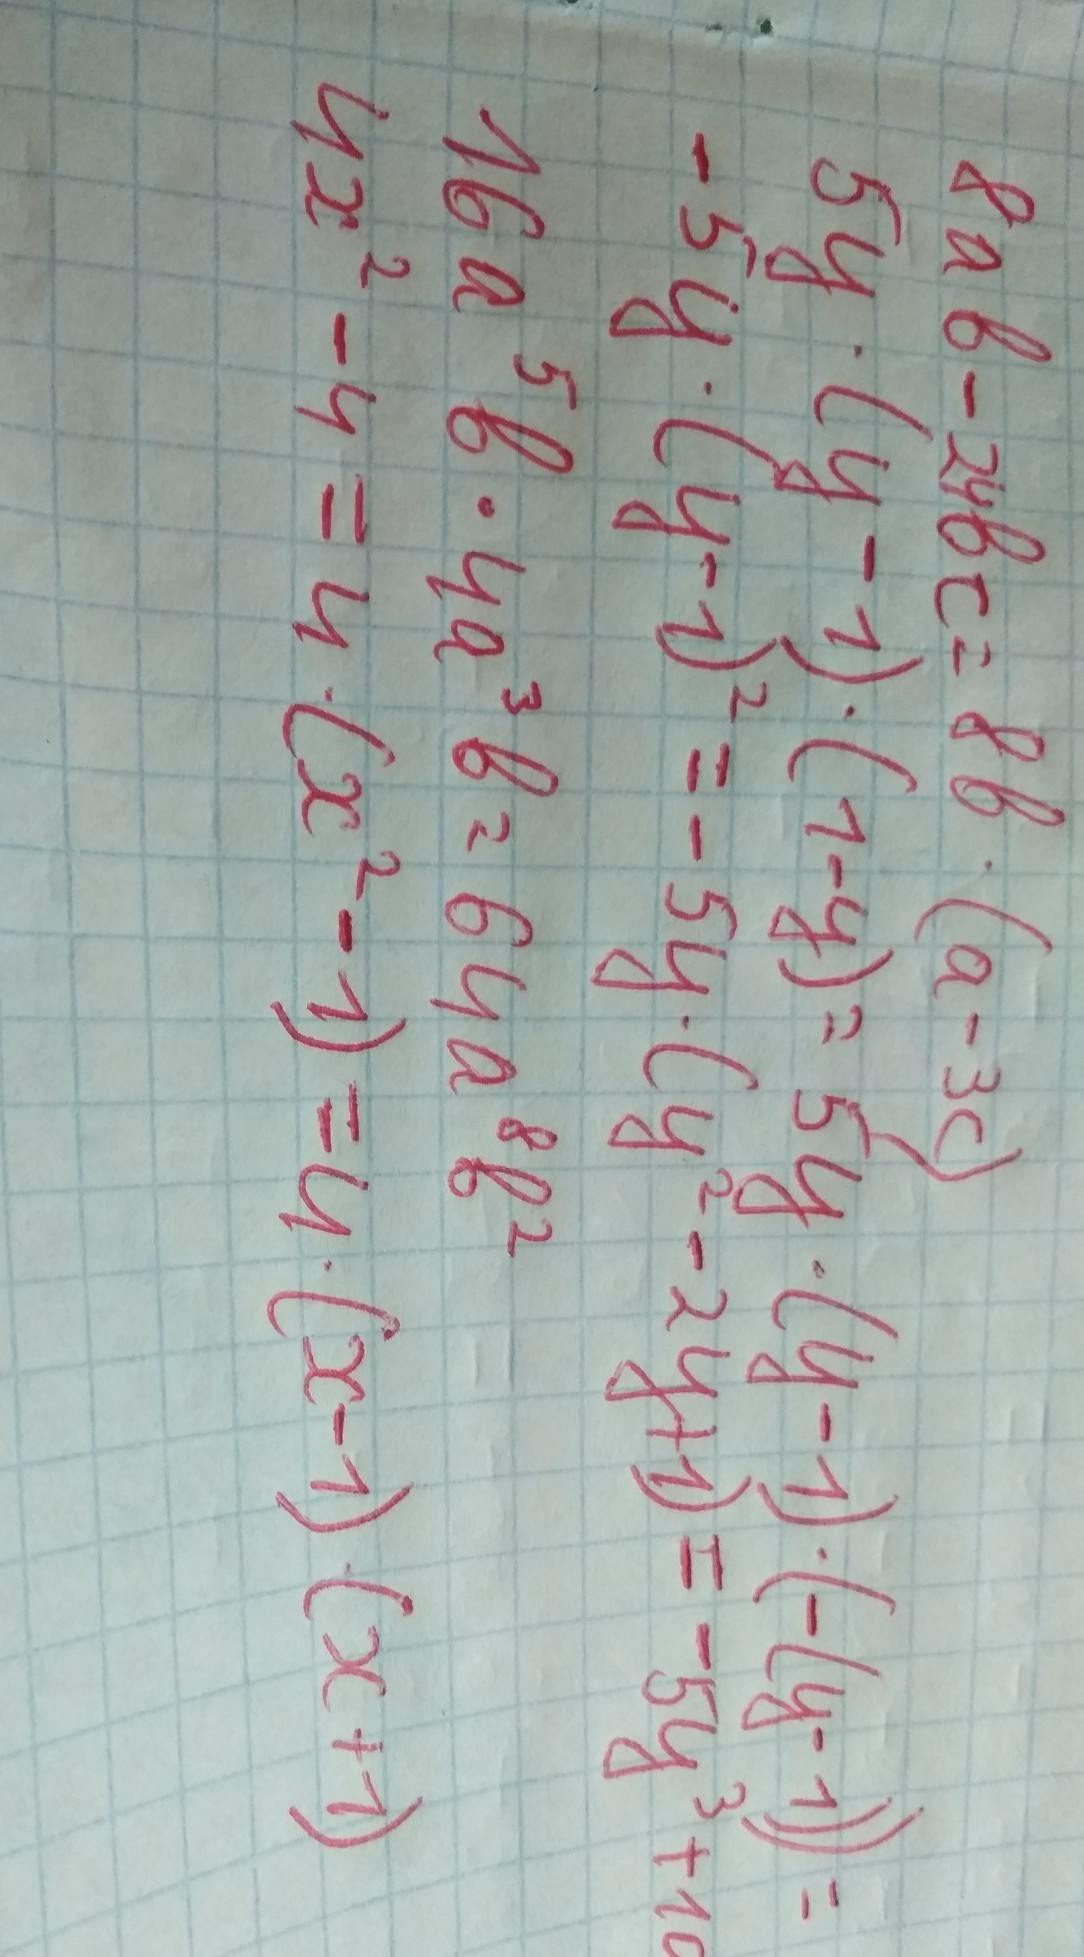 8ab-24bc=8b·(a-3c)
5y·(y-1)·(1-y)=5y·(y-1)·(-(y-1))=
-5y·(y-1)²=-5y·(y²-2y+1)=-5y³+10
16a⁵b·4a³b=64a⁸b²
4x²-4=4·(x²-1)=4·(x-1)·(x+1)